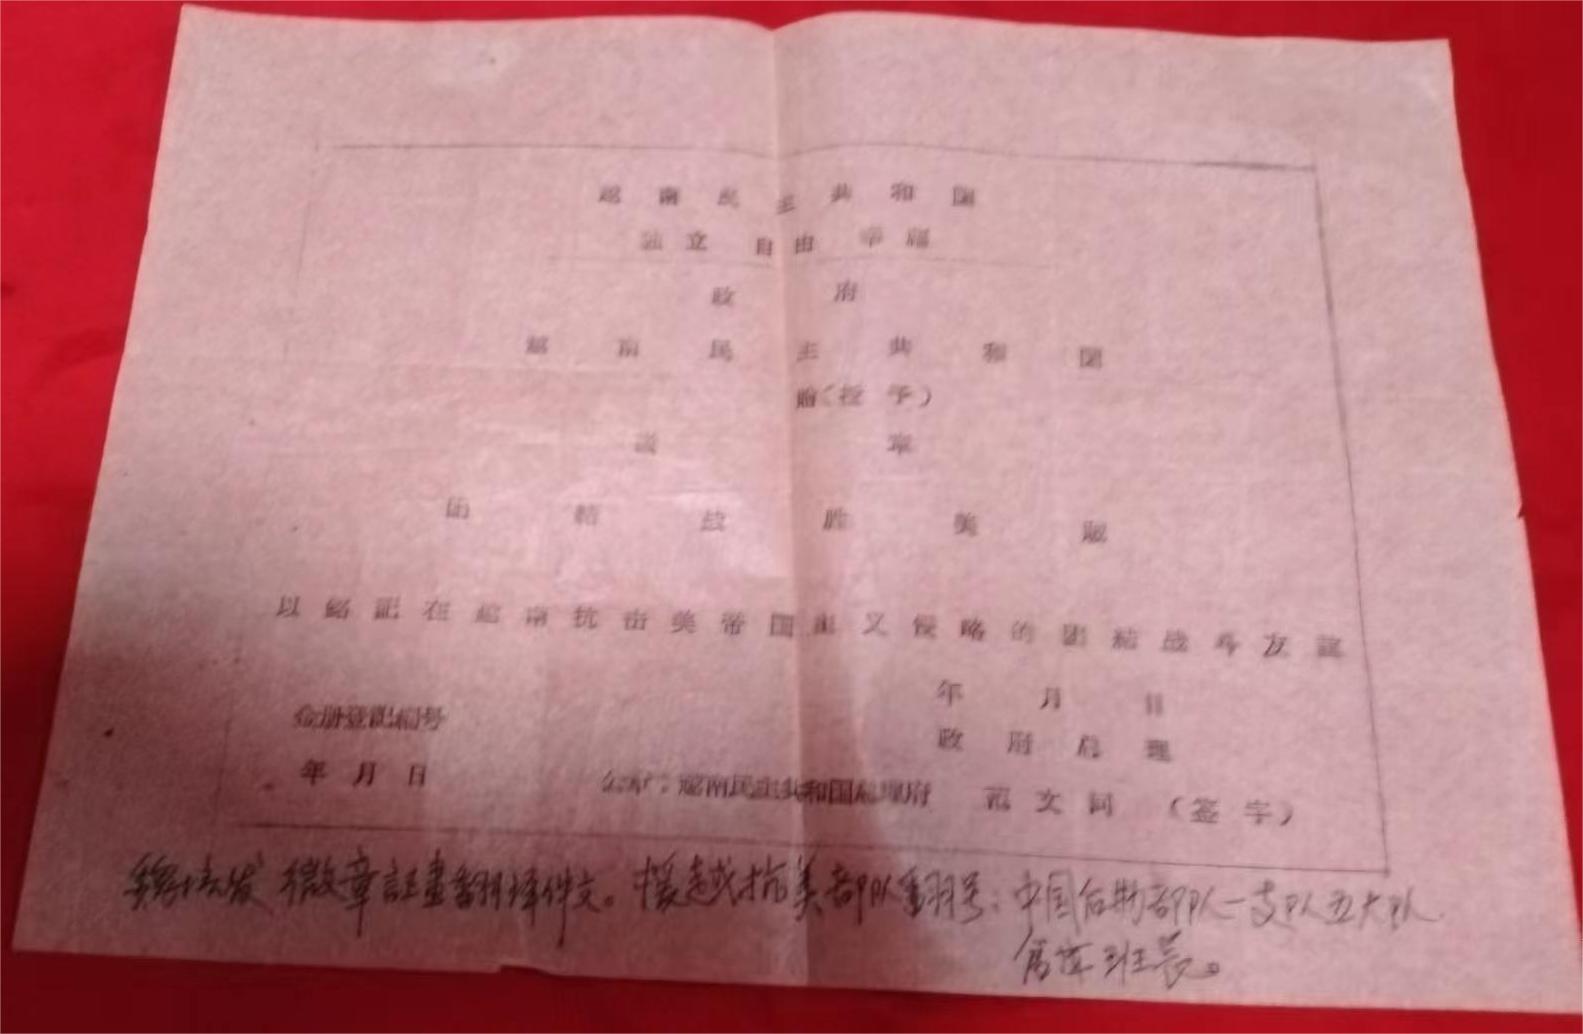 越南民主共和国
独立 自由 幸福
政府
越南民主共和国
赠(授予)
徽章
团结战胜美贼
以铭記在越南抗击美帝国主义侵略的团結战斗友誼
年 月 日
金册登記编号
政府总理
年月日
公布:越南民主共和国总理府 范文同 (签字)
徽章証書翻译件文。援越抗美部队番号:中国后勤部队一支队五大队
班长。